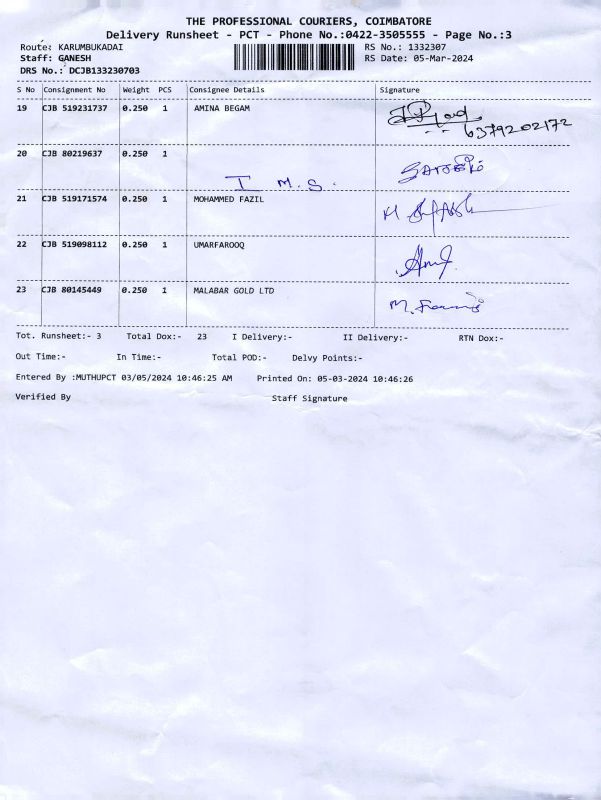 THE PROFESSIONAL COURIERS, COIMBATORE
Delivery Runsheet - PCT - Phone No.:0422-3505555 - Page No.:3
Route: KARUMBUKADAI RS No.: 1332307
Staff: GANESH RS Date: 05-Mar-2024
DRS No.: DCJB133230703
S No Consignment No Weight PCS Consignee Details Signature
19 CJB 519231737 0.250 1 AMINA BEGAM
6379202172
20 CJB 80219637 0.250 1
I M.S.
21 CJB 519171574 0.250 1 MOHAMMED FAZIL
22 CJB 519098112 0.250 1 UMARFAROOQ
23 CJB 80145449 0.250 1 MALABAR GOLD LTD
Tot. Runsheet:- 3 Total Dox:- 23 I Delivery:- II Delivery:- RTN Dox:-
Out Time:- In Time:- Total POD:- Delvy Points:-
Entered By :MUTHUPCT 03/05/2024 10:46:25 AM Printed On: 05-03-2024 10:46:26
Verified By Staff Signature